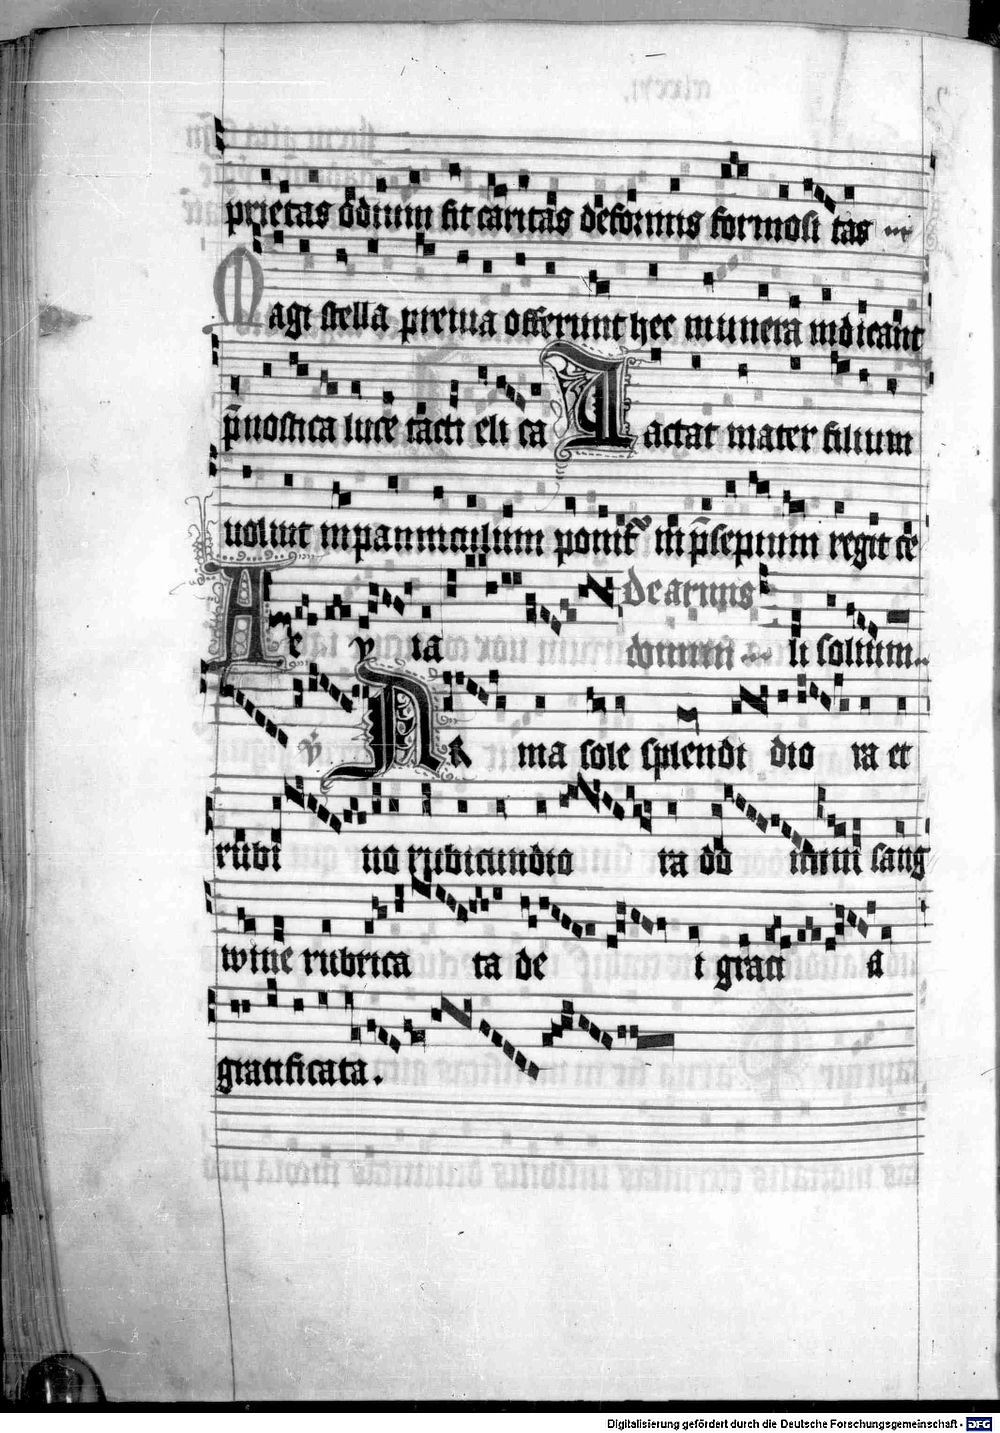 prietas odium fit caritas deformis formosi tas
Magi stella previa offerunt hec munera indicant
p̄nostica luce tacti celi ca Lactat mater filium
uoluit in panniculum ponit in p̄sepium regit ce
Ae v ia De armis domini li solium
v̄ Na ma sole splendi dio ra et
rubi no rubicundio ra do mini sang
wine rubrica ta de i graci a
gratificata.
Digitalisierung gefördert durch die Deutsche Forschungsgemeinschaft - DFG